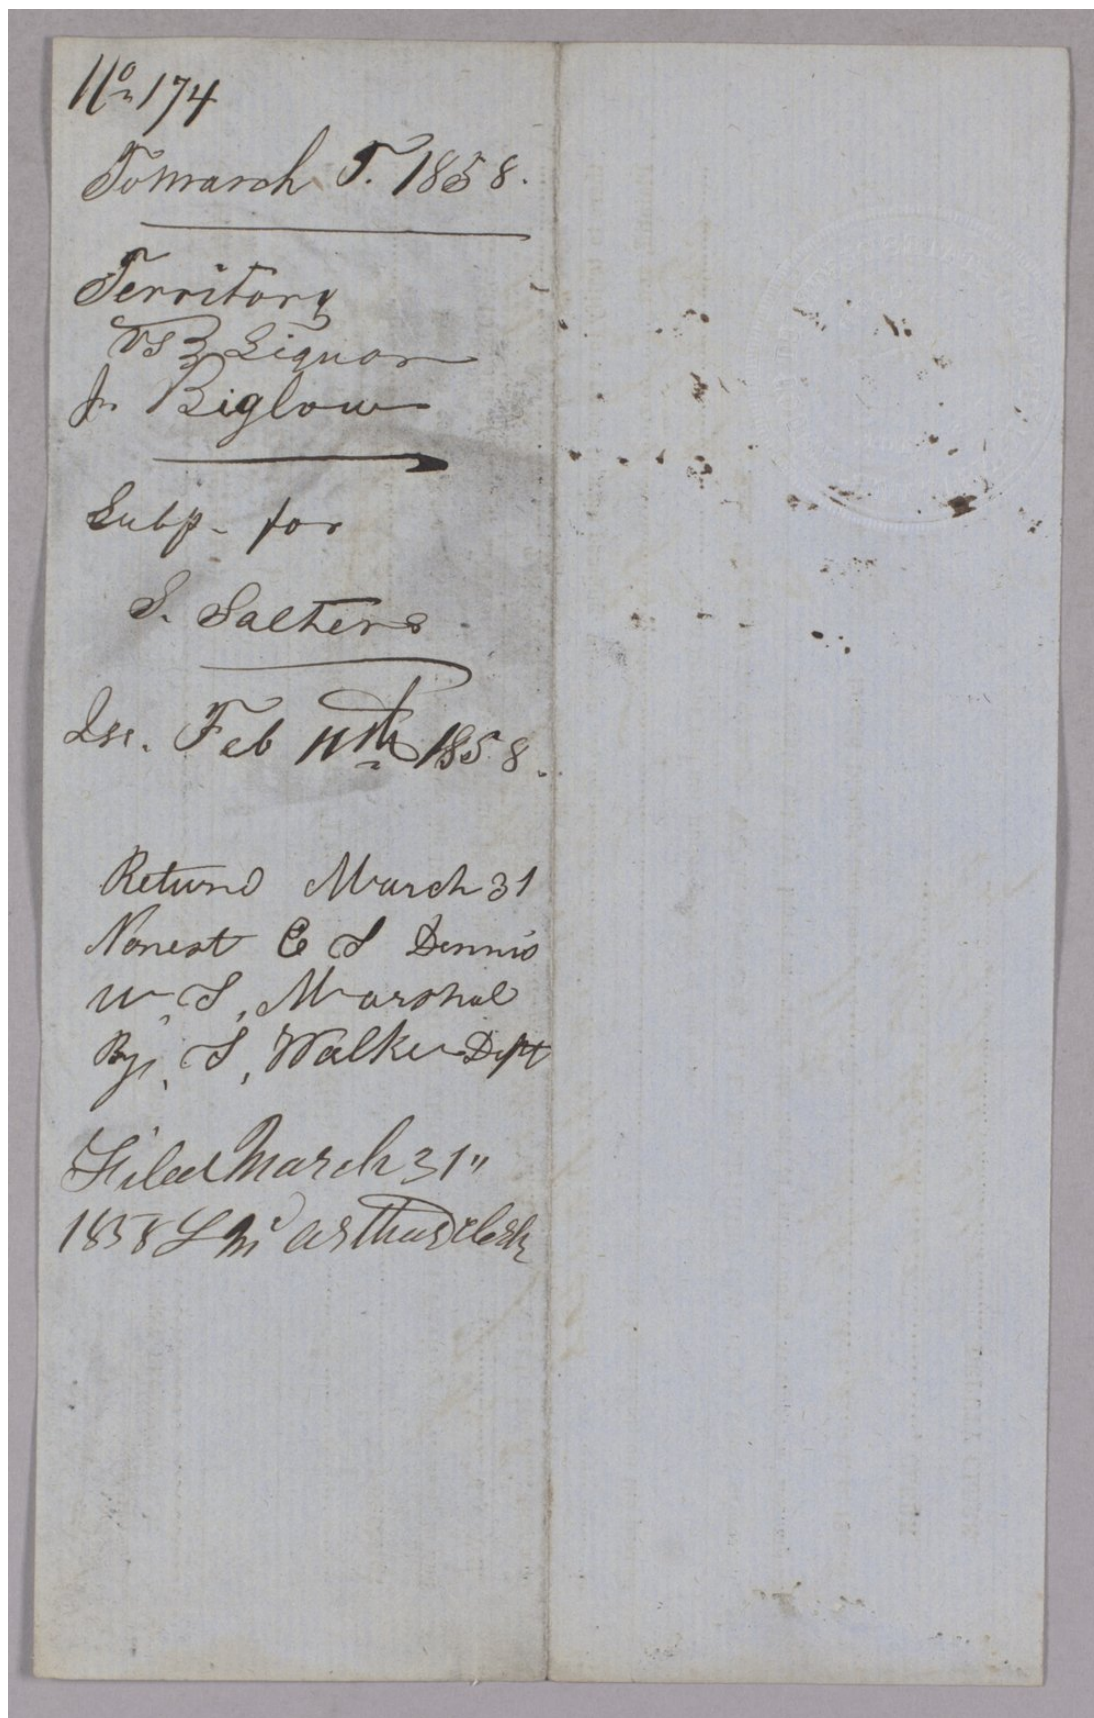 No 174
To March T. 1858.
Territory
vs } Liquor
J. Biglow
Subp. for
S. Salters
Iss. Feb 11th 1858.
Returnd March 31
Nonest E S Dennis
U, S, Marshal
By, S, Walker Dept
Filed March 31"
1858 L Mc arthur clerk